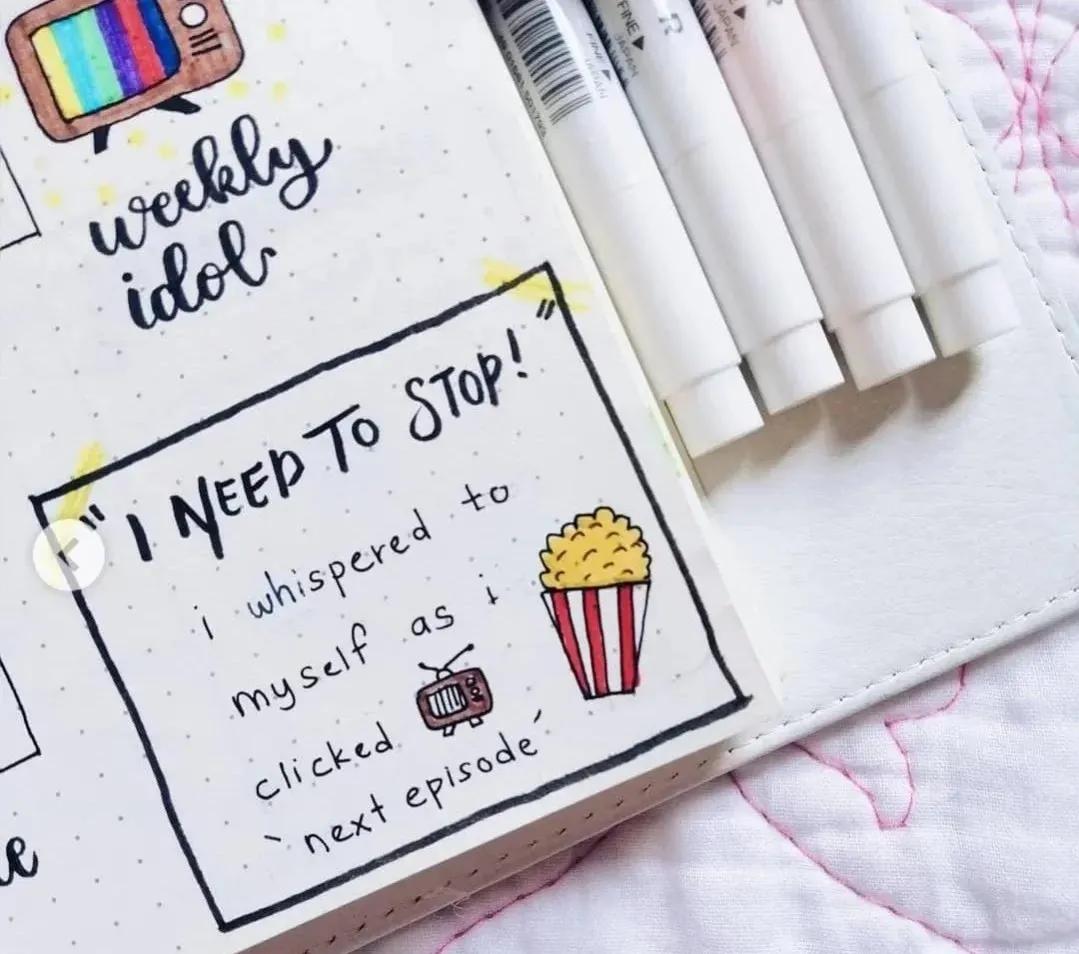 weekly
idol
" I NEED TO STOP! "
i whispered to
myself as i
clicked
` next episode ´
FINE ▶
JAPAN
R
FINE ▶
JAPAN
JAPAN